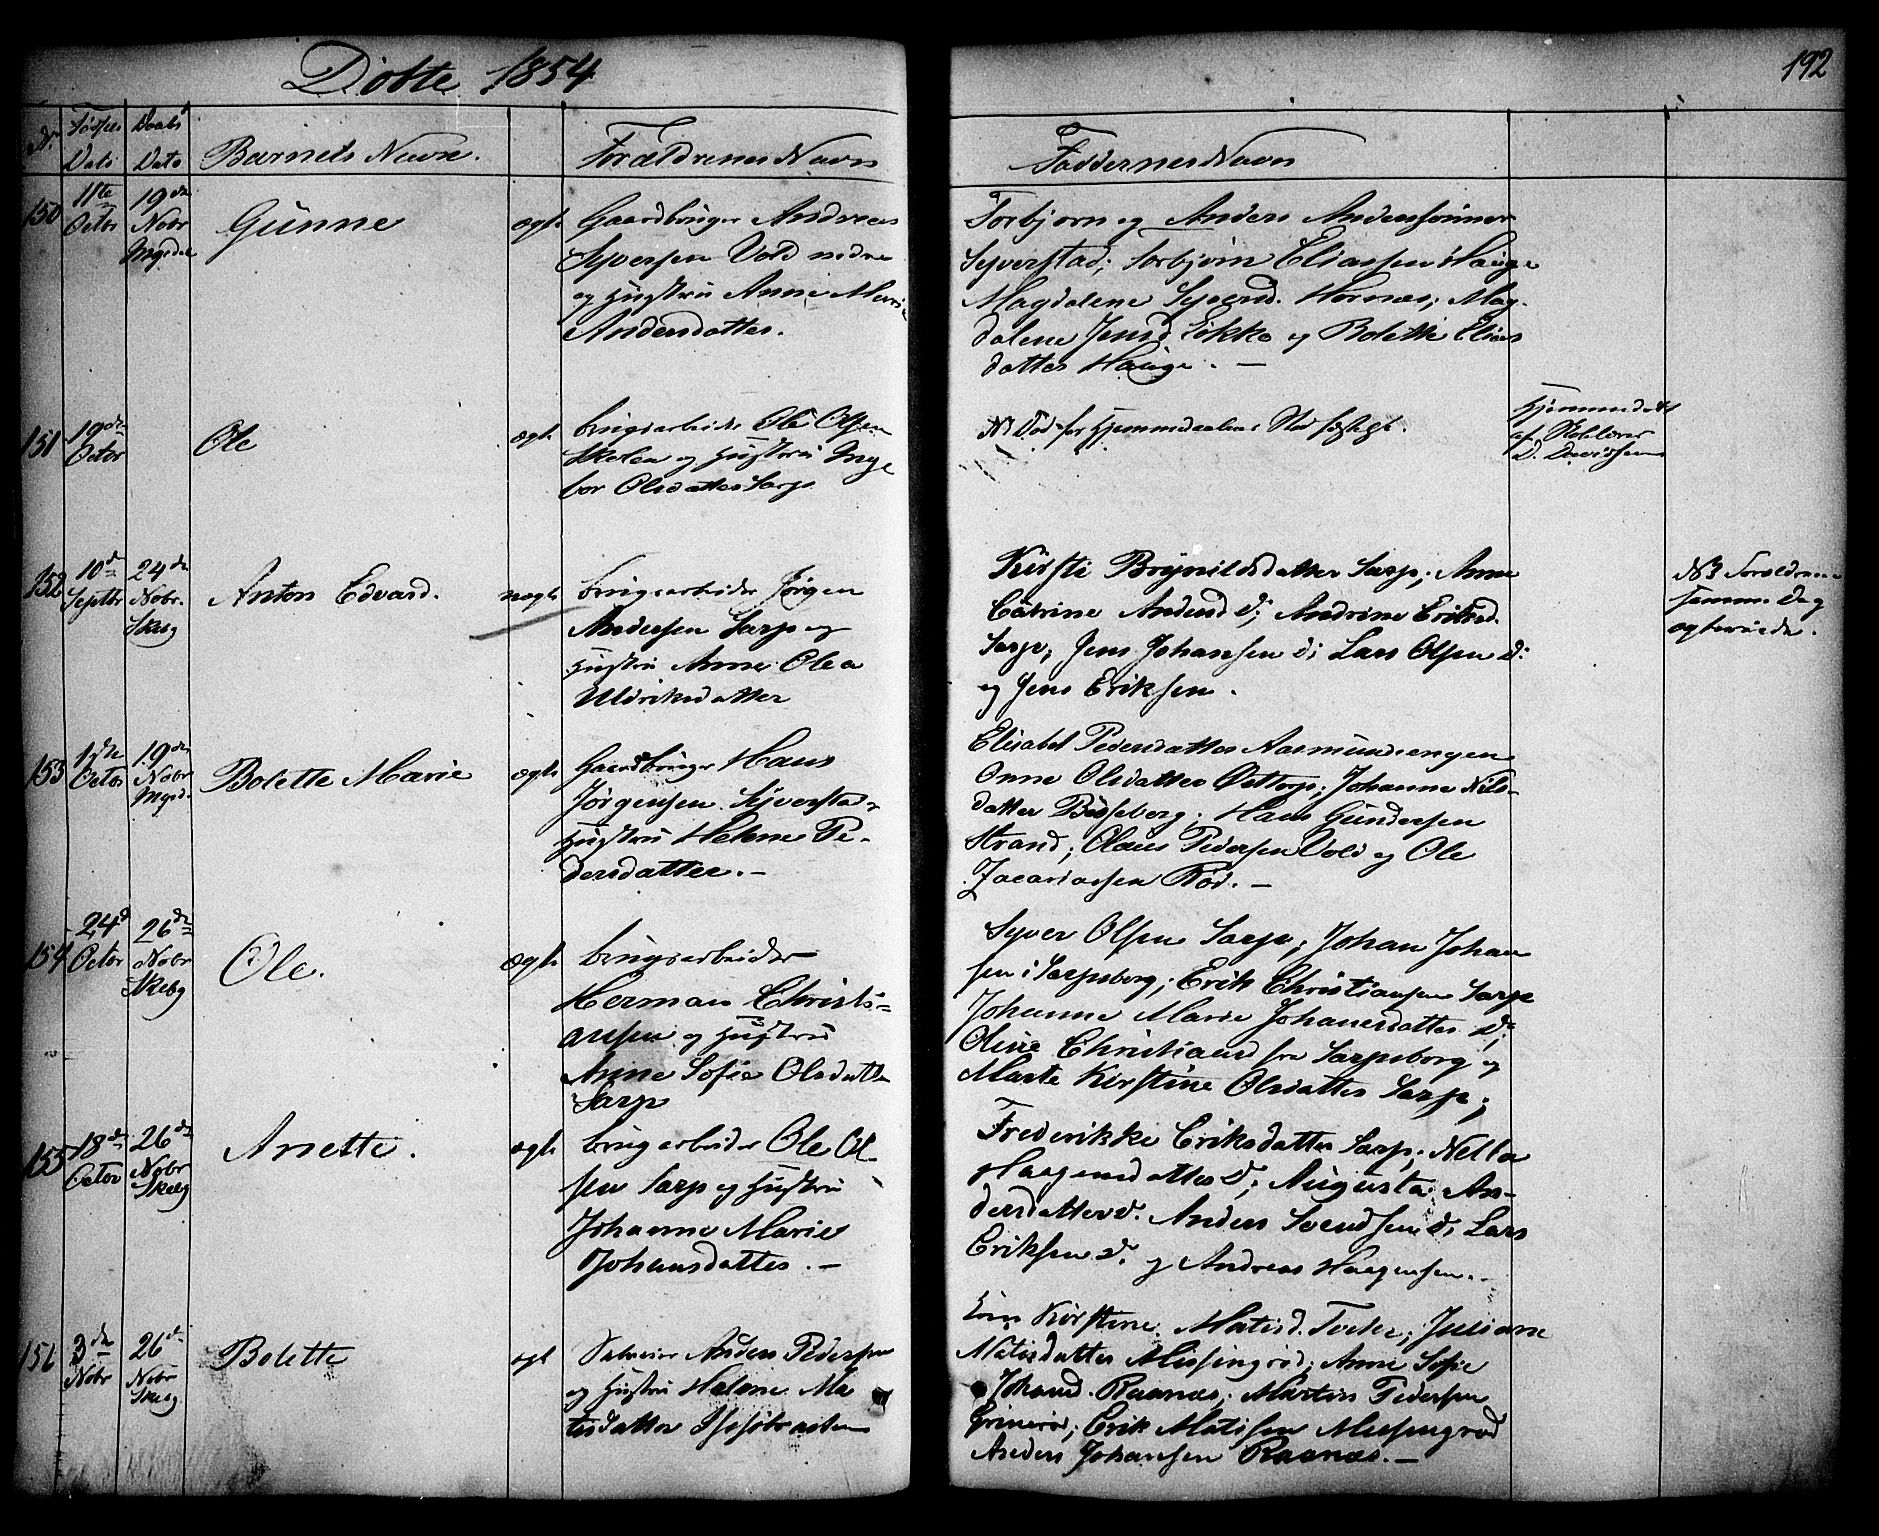 Döbte 1854
192
No. Fødsels Dato Daabs Dato Barnets Navn. Forældrenes Navn Faddernes Navn
150 11te Octbr 19de Novbr Gunne ægte Gaardbruger Andreas
Syversen Vold nedre
og Hustru Anne Marie
Andersdatter.
Torbjørn og Anders Anderssønner
Syverstad; Torbjørn Eliassen Hauge
Magdalene Syversd. Hornæs; Mag-
dalene Jensd. Eikke og Bolette Elias
datter Hauge. —
151 19de Octbr Ole ægte Brugsarbeider Ole Olsen
Skolen og Hustru Inge
bor Olsdatter Sarp
Hjemmedøbt
af
D. Davidsen
152 10de Septbr 24de Novbr. Skebg Anton Edvard. uægte Brugsarbeider Jørgen
Andersen Sarp og
Hustru Anne Olea
Uldriksdatter
Kirsti Brynildsdatter Sarp; Anne
Catrine Andersd. D; Andrine Eriksd.
Sarp; Jens Johansen D; Lars Olsen D:
og Jens Eriksen.
NB Forældrene
samme Dag
ægteviede.
153 Octbr 19de Novbr Bolette Marie ægte Gaardbruger Hans
Jørgensen Syverstad
Hustru Helene Pe-
dersdatter. —
Elisabet Pedersdatter Aasmundrengen
Anne Olsdatter Østtorp; Johanne Nils-
datter Bisseberg; Hans Gundersen
Strand; Olaus Pedersen Vold og Ole
Zacariassen Rød. —
154 24de Octbr 26de Novbr Skebg Ole. ægte Brugsarbeider
Herman Christi-
ansen og Hustru
Anne Sofie Olsdatter
Sarp
Syver Olsen Sarp; Johan Johan
sen i Sarpsborg; Erik Christiansen Sarp
Johanne Marie Johanesdatter D;
Oline Christiansd fra Sarpsborg og
Marte Kirstine Olsdatter Sarp;
155 18de Octbr 26de Novbr Skebg Anette. ægte Brugarbeider Ole Ol-
sen Sarp og Hustru
Johanne Marie
Johansdatter. —
Frederikke Eriksdatter Sarp; Nella
Haagensdatter D; Augusta An-
dersdatter D. Anders Svendsen D; Lars
Eriksen D. og Andreas Haagensen.
156 3de Novbr 26de Novbr Skebg Bolette ægt Anders Pedersen
og Hustru Helene Ma
tisdatter
Kirstine Matisd. Torke; Juliane
Matisdatter Missingrød; Anne Sofie
Johansd. Raanæs; Martin Pedersen
Grinerød; Erik Matisen Missingrød
Anders Johansen Raanæs. —